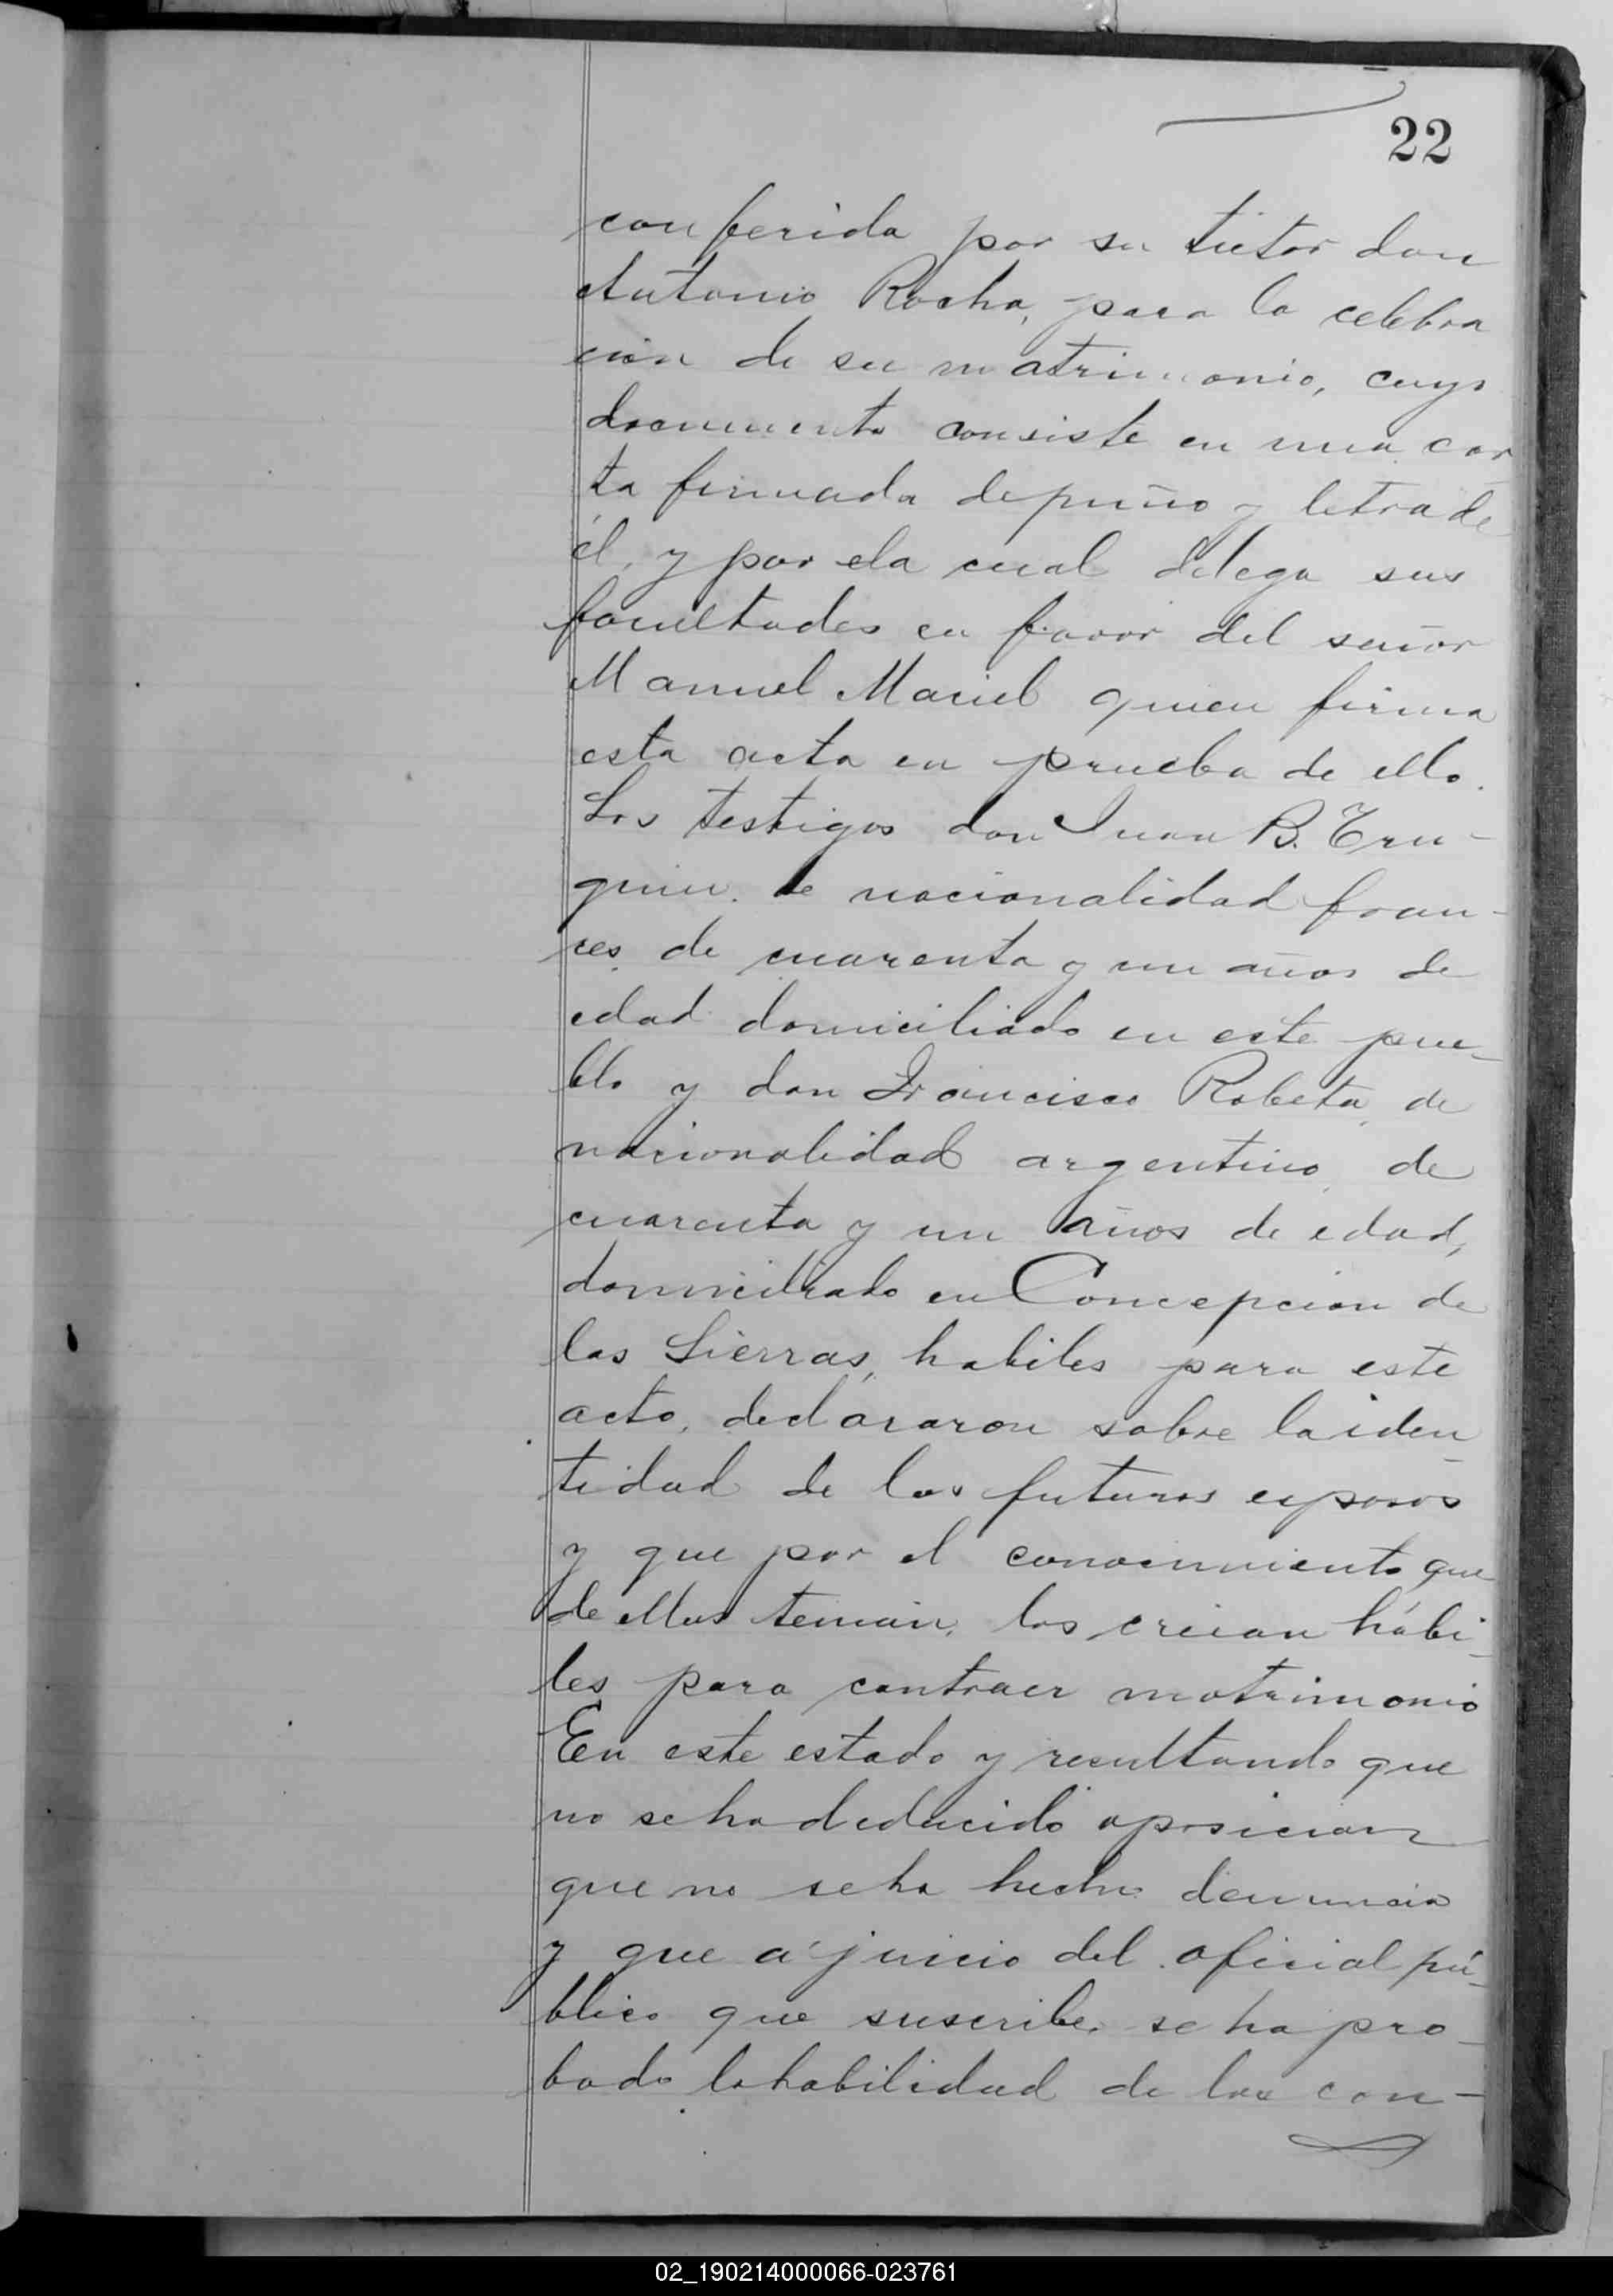 22
conferida por su tutor don
Antonio Rocha, para la celebra
ción de su matrimonio, cuyo
documento consiste en una car
ta firmada de puño y letra de
él, y por ela cual delega sus
facultades en favor del señor
Manuel Maciel quien firma
esta acta en prueba de ello.
Los testigos don Juan B. Tru-
quin. de nacionalidad fran-
ces de cuarenta y un años de
edad domiciliado en este pue-
blo y don Francisco Robeta, de
nacionalidad argentino, de
cuarenta y un años de edad,
domiciliado en Concepcion de
las Sierras, habiles para este
acto, declararon sobre la iden-
tidad de los futuros esposos
y que por el conocimiento que
de ellos tenian, los creian hábi-
les para contraer matrimonio
En este estado y resultando que
no se ha deducido oposicion
que no se ha hecho denuncia
y que á juicio del oficial pú-
blico que suscribe, se ha pro-
bado la habilidad de los con-
02_190214000066-023761